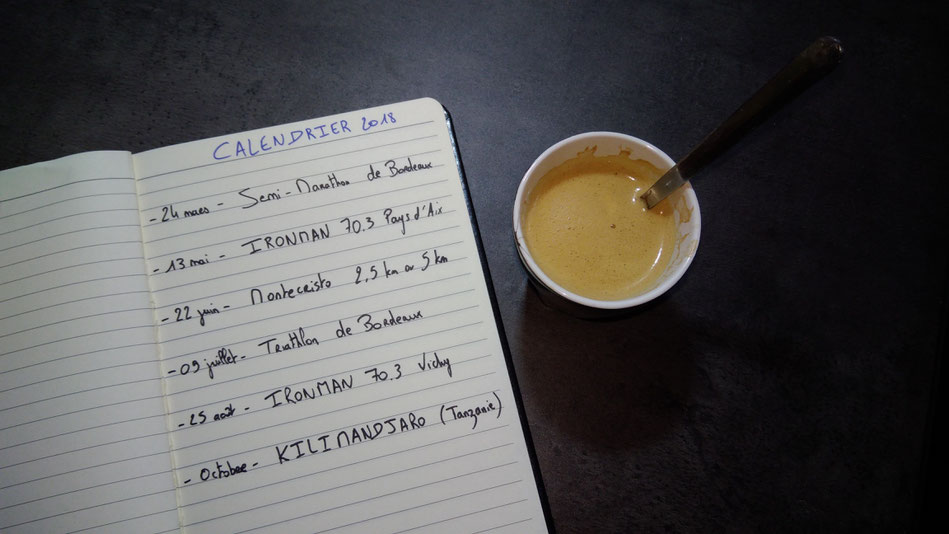 CALENDRIER 2018
- 24 mars - Semi-Marathon de Bordeaux
- 13 mai - IRONMAN 70.3 Pays d'Aix
- 22 juin - Montecristo 2,5 km ou 5 km
- 09 juillet - Triathlon de Bordeaux
- 25 août - IRONMAN 70.3 Vichy
- Octobre - KILIMANDJARO (Tanzanie)